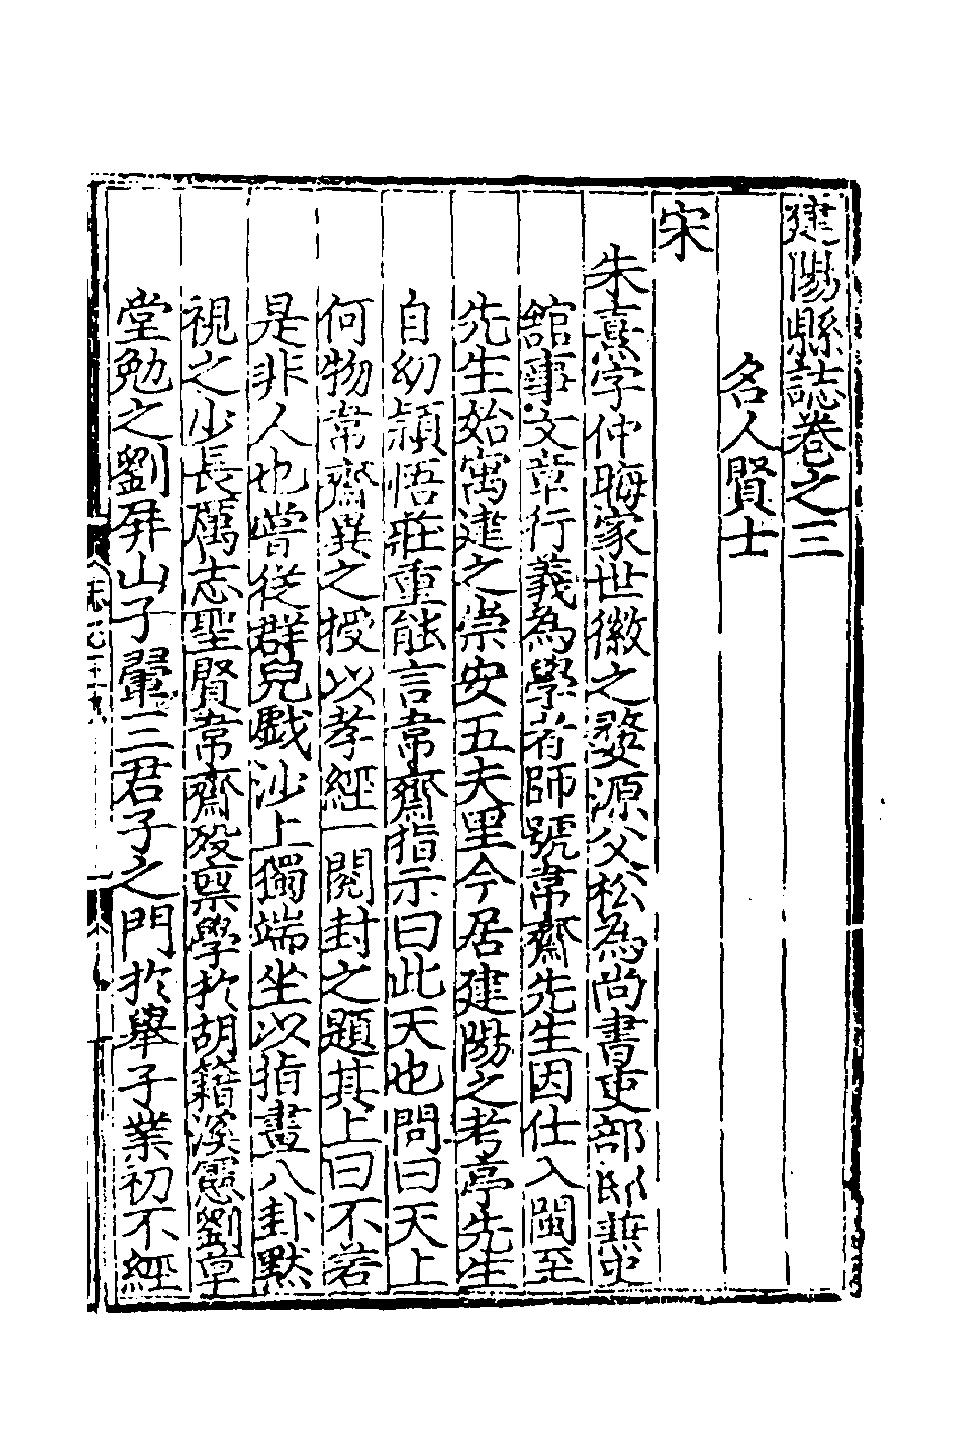 建陽縣誌卷之三
名人賢士
宋
朱熹字仲晦家世徽之婺源父松為尚書吏部郎兼史
舘事文章行義為學者師號韋齋先生因仕入閩至
先生始寓建之崇安五夫里今居建陽之考亭先生
自幼穎悟莊重能言韋齋指示曰此天也問曰天上
何物韋齋異之授以孝經一閱封之題其上曰不若
是非人也嘗從群兒戯沙上獨端坐以指畫八卦黙
視之少長厲志聖賢韋齋歿稟學於胡籍溪憲劉草
堂勉之劉屏山子翬三君子之門於舉子業初不經